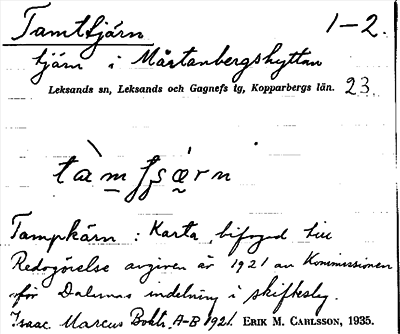 Tamttjärn 1-2.
tjärn i Mårtanbergshyttan
Leksands sn, Leksands och Gagnefs tg, Kopparbergs län. 23.
Tampkärn : Karta, bifogad till
Redogörelse avgiven år 1921 av Kommissionen
för Dalarnas indelning i skifteslag.
Isaac Marcus Boktr. A-B 1921. ERIK M. CARLSSON, 1935.